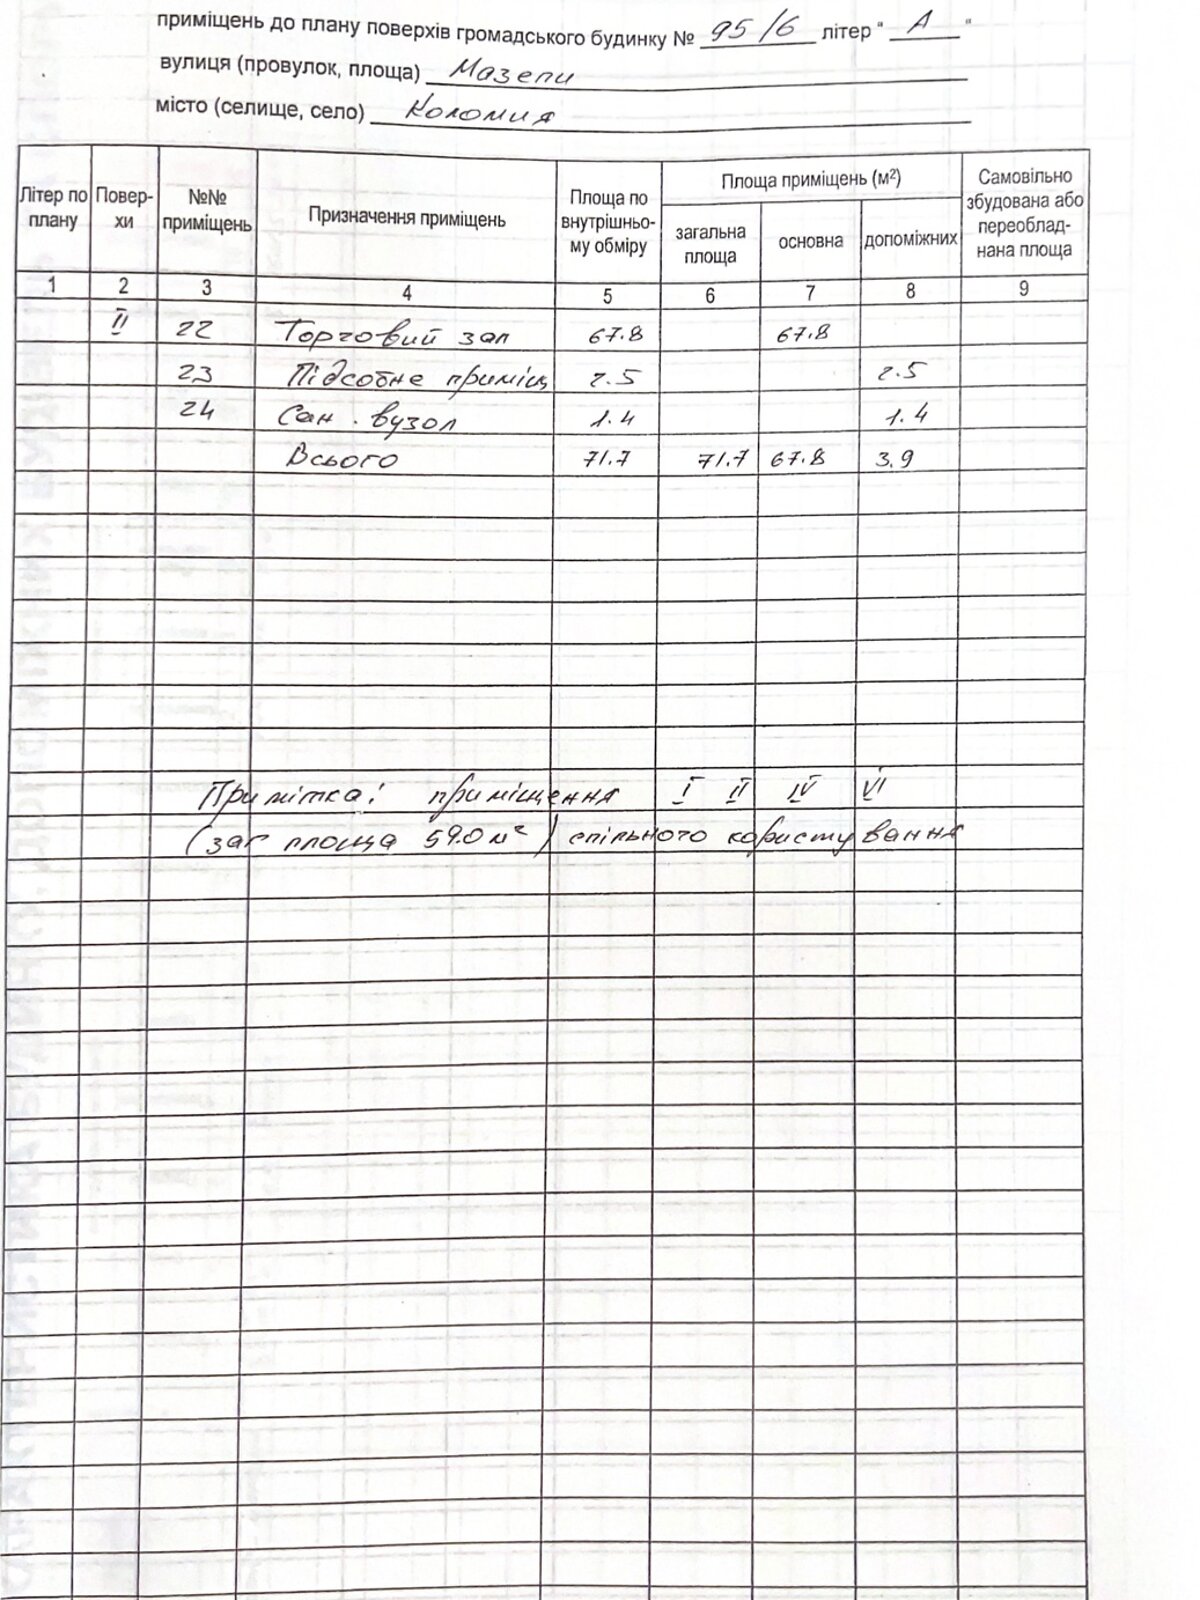 приміщень до плану поверхів громадського будинку № 95/6 літер " А "
вулиця (провулок, площа) Мазепи
місто (селище, село) Коломия
Літер по плану | Повер-хи | №№ приміщень | Призначення приміщень | Площа по внутрішньо-му обміру | Площа приміщень (м²) | загальна площа | основна | допоміжних | Самовільно збудована або переоблад-нана площа
1 2 3 4 5 6 7 8 9
II 22 Торговий зал 67.8 67.8
23 Підсобне приміщ 2.5 2.5
24 Сан. вузол 1.4 1.4
Всього 71.7 71.7 67.8 3.9
Примітка: приміщення I II IV VI
(заг площа 59.0 м²) спільного користування